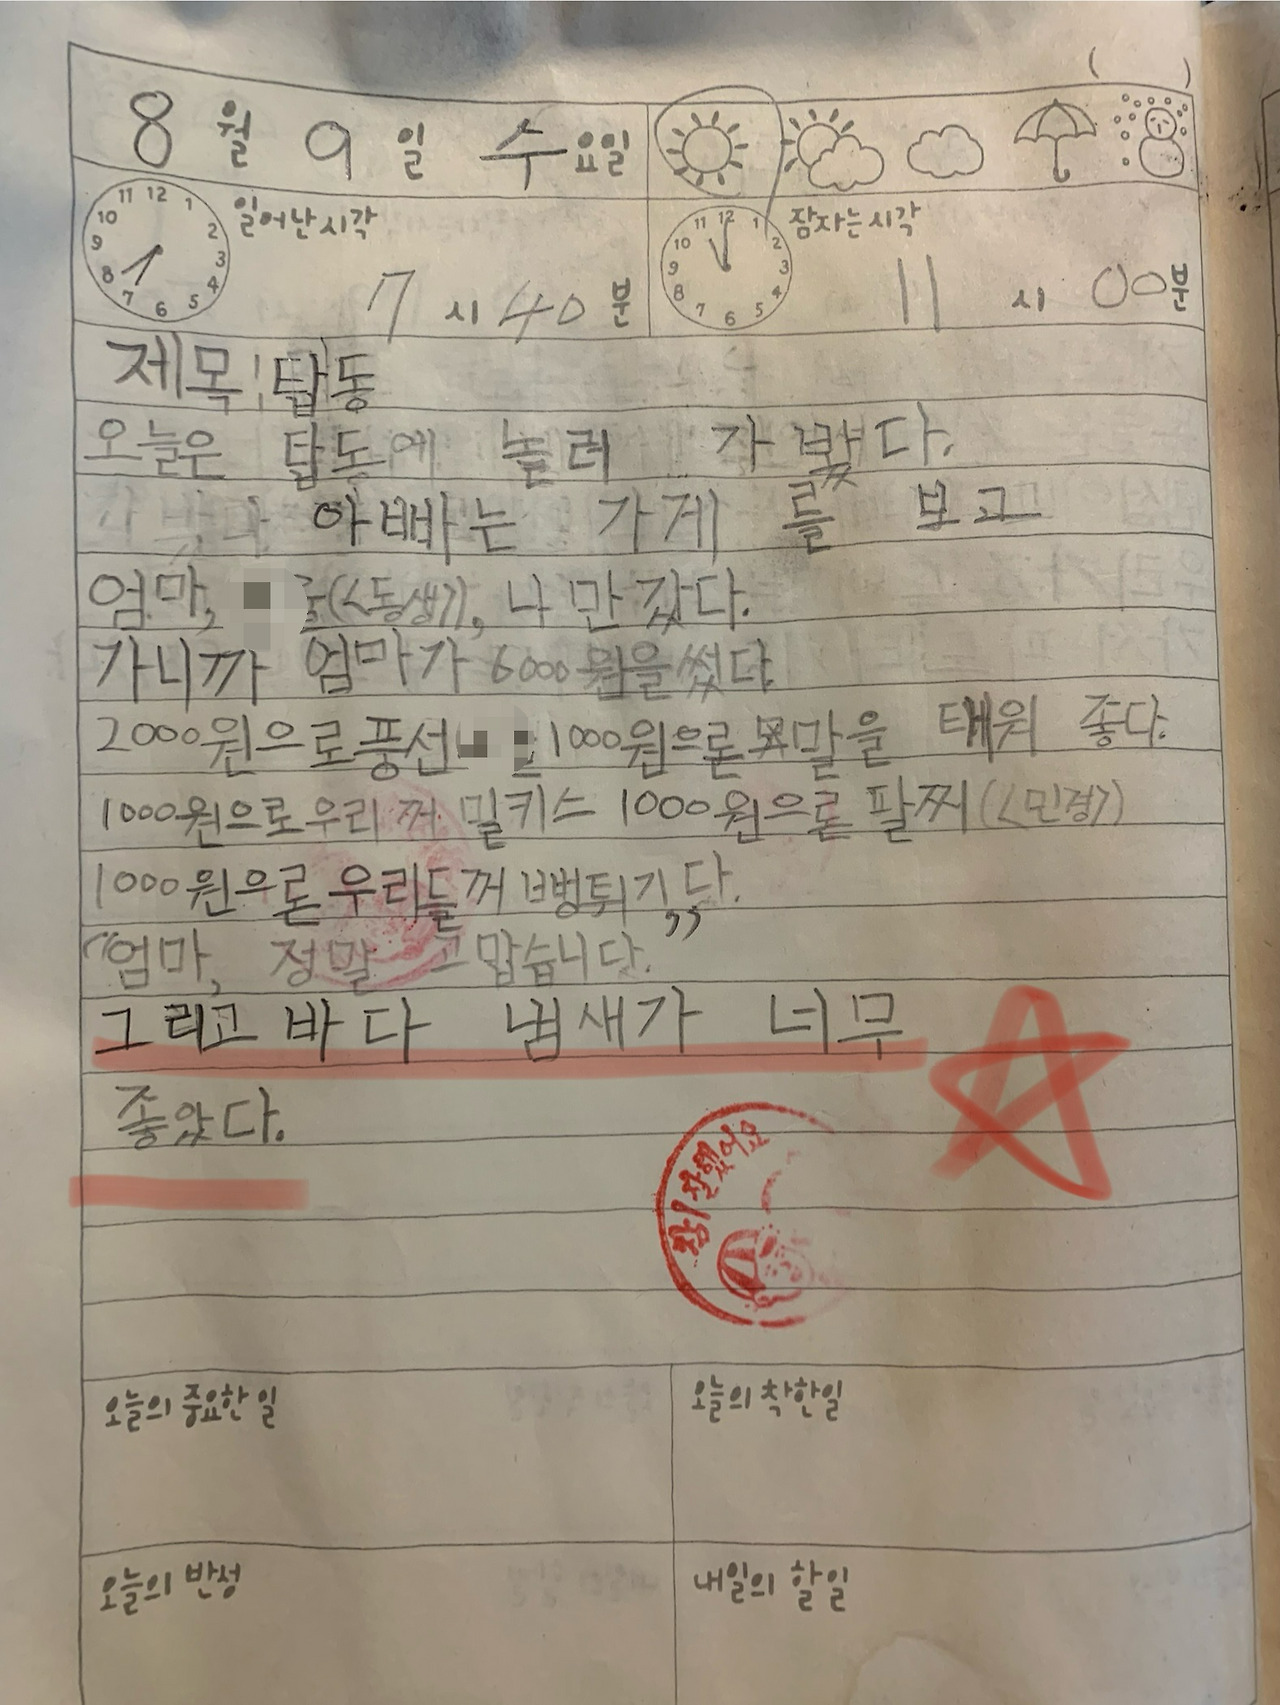 ( )
8월 9일 수요일
일어난시각
11 12 1 2 3 4 5 6 7 8 9 10
7시 40분
잠자는시각
11 12 1 2 3 4 5 6 7 8 9 10
11시 00분
제목:탑동
오늘은 탑동에 놀러 가 봤다.
아빠는 가게를 보고
엄마, (<동생>), 나만 갔다.
가니까 엄마가 6000원을 썼다.
2000원으로풍선 1000원으론 말을 태워 좋다.
1000원으로우리꺼 밀키스 1000원으론 팔찌(<민정>)
1000원으론 우리들꺼 뻥튀기,다.
"엄마, 정말 고맙습니다."
그리고 바다 냄새가 너무
좋았다.
참!잘했어요
오늘의 중요한 일
오늘의 착한일
오늘의 반성
내일의 할일